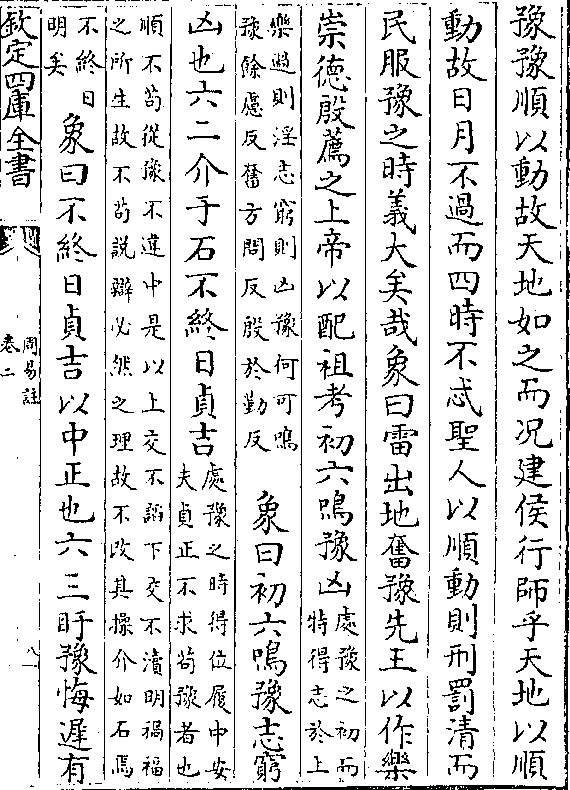 豫豫順以動故天地如之而况建侯行師乎天地以順
動故日月不過而四時不忒聖人以順動則刑罰清而
民服豫之時義大矣哉象曰雷出地奮豫先王以作樂
崇德殷薦之上帝以配祖考初六鳴豫凶
處豫之初而
特得志於上
樂過則淫志窮則凶豫何可鳴
豫餘慮反奮方問反殷於勤反
象曰初六鳴豫志窮
凶也六二介于石不終日貞吉
處豫之時得位履中安
夫貞正不求苟豫者也
順不苟從豫不違中是以上交不諂下交不瀆明禍福
之所生故不苟説辯必然之理故不改其操介如石焉
不終日
明矣
象曰不終日貞吉以中正也六三盱豫悔遲有
欽定四庫全書
周易註
卷二